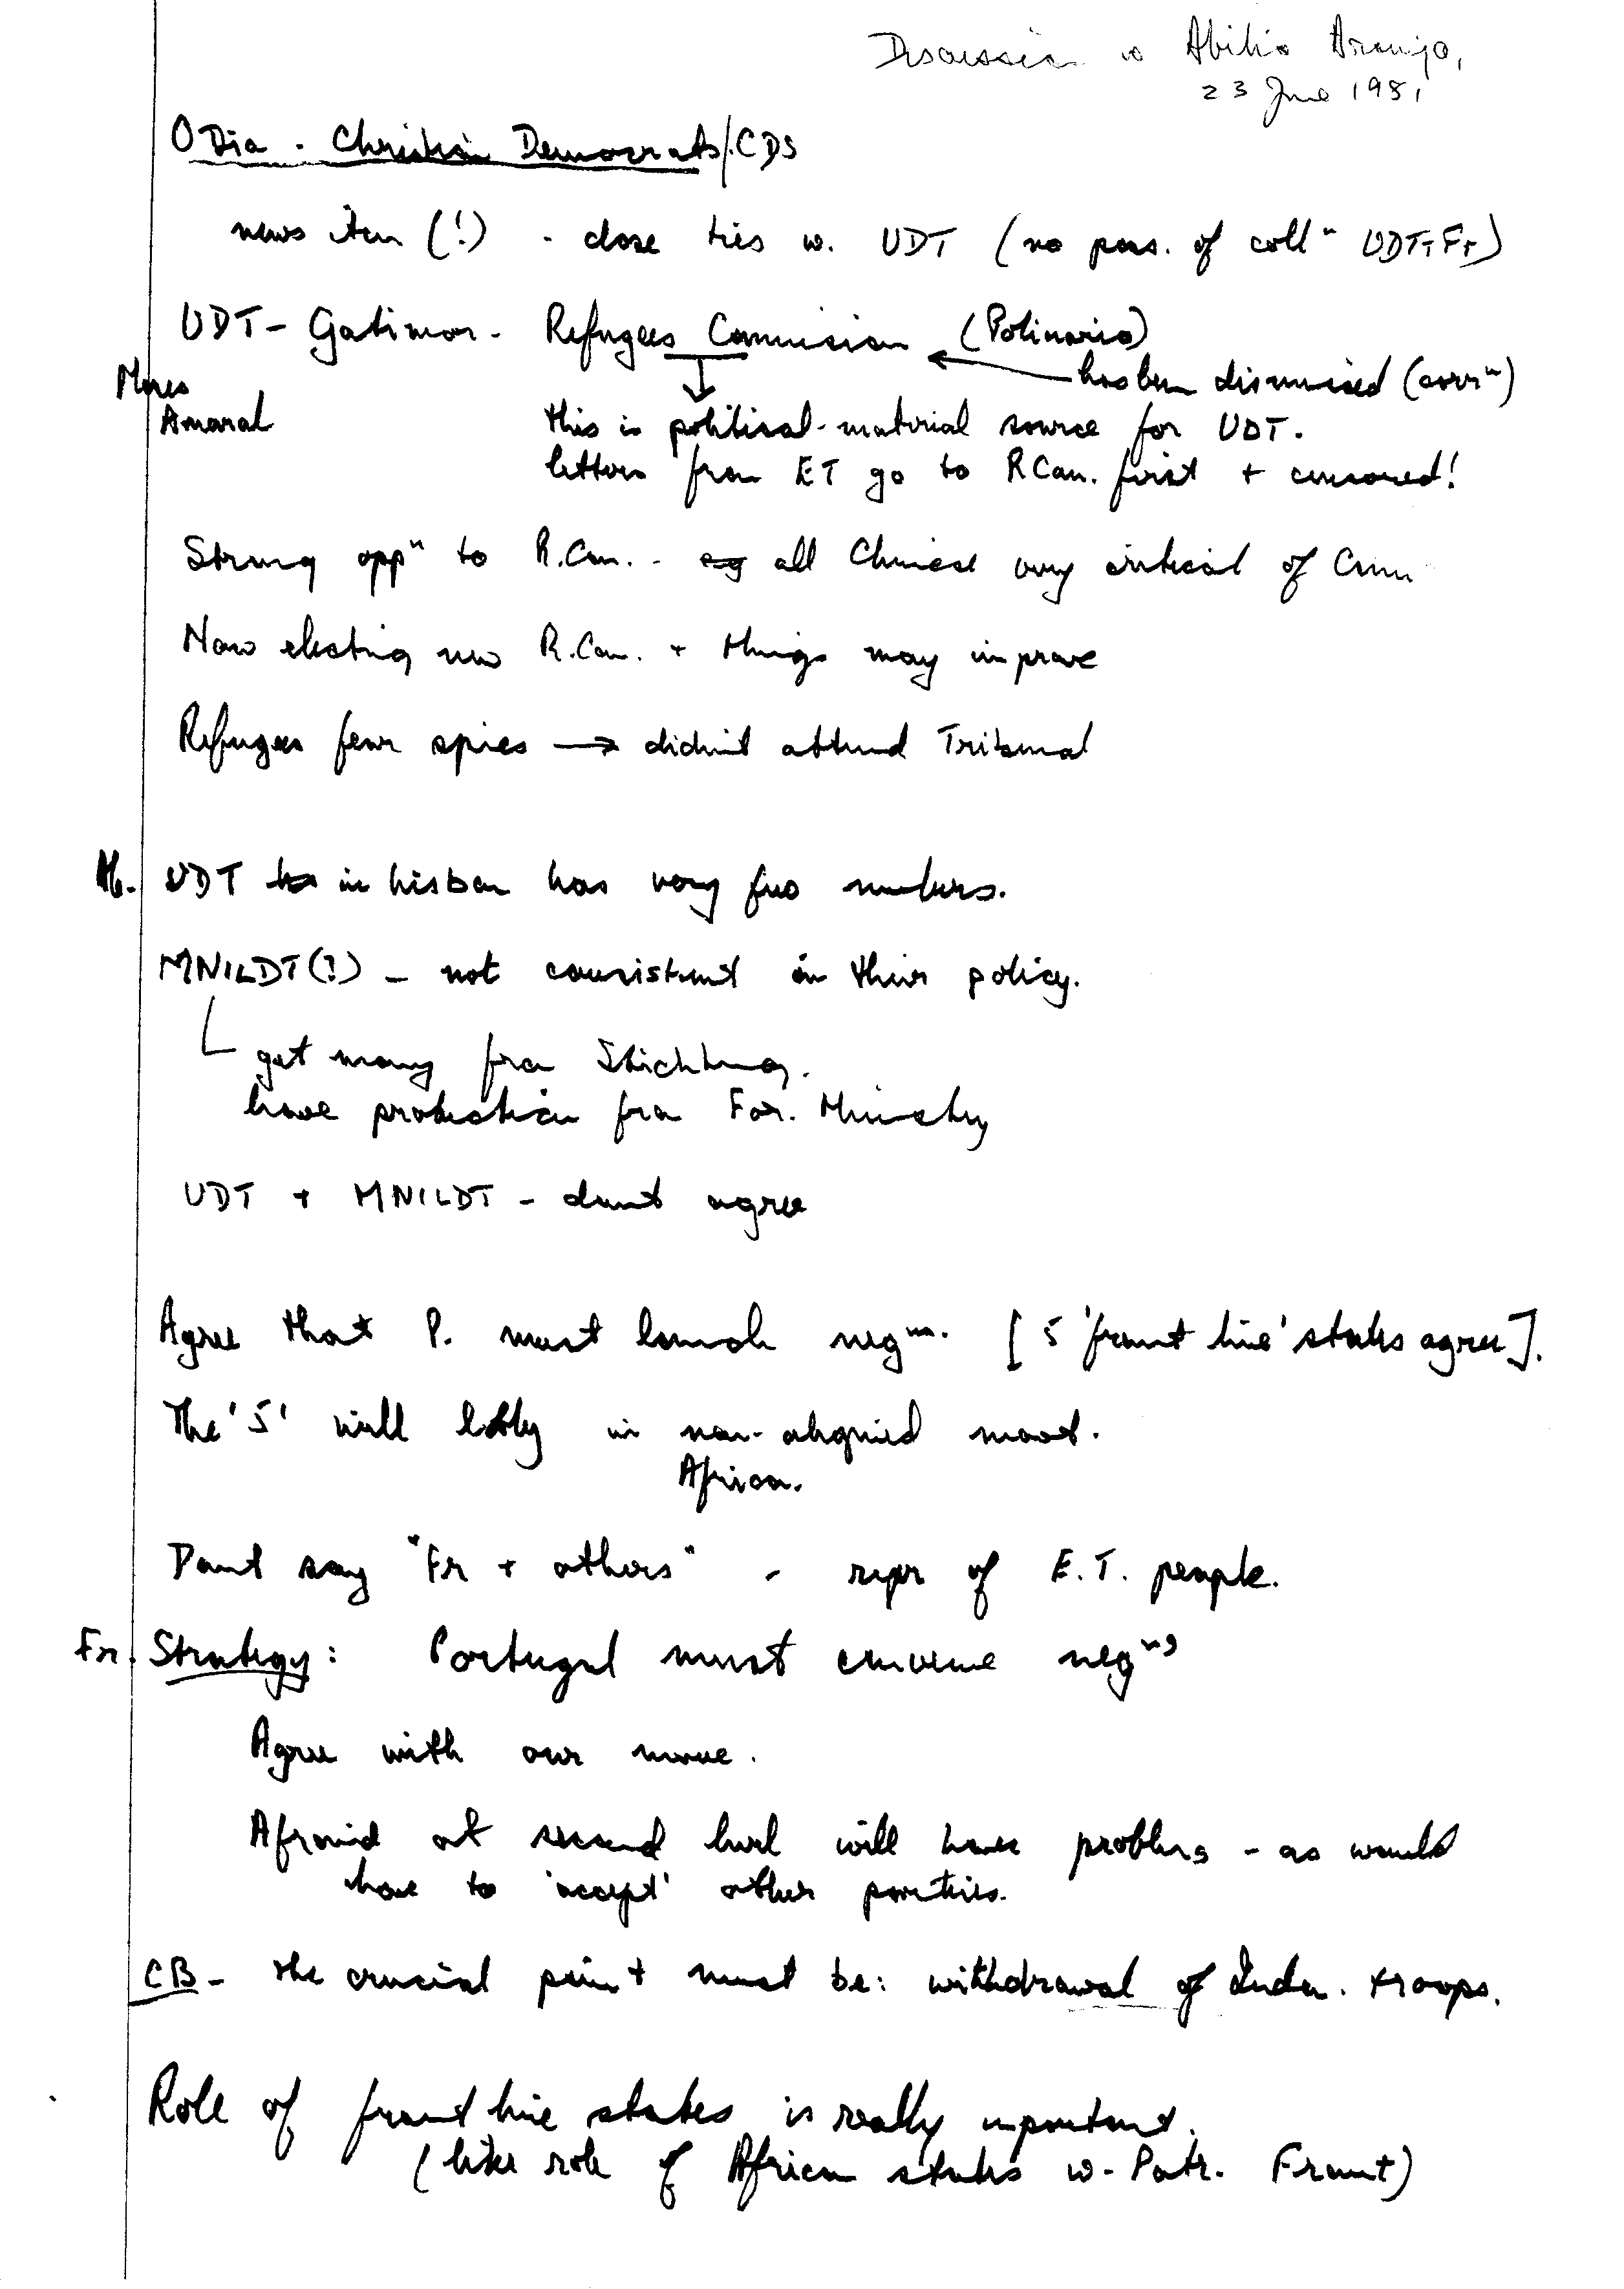 Discussion w Abilio Araujo,
23 June 1981
O Dia - Christian Democrats/CDS
news item (!) - close ties w. UDT (no poss. of collⁿ UDT + Fr)
UDT - Gatimor - Refugees Commission (Polinario)
has been dismissed (corrⁿ)
Moses
Amaral
this is political-material source for UDT.
letters from ET go to R Com. first + censored!
Strong oppⁿ to R.Com. - eg all Chinese very critical of Comm
Now electing new R.Com. + things may improve
Refugees fear spies → didn't attend Tribunal
Ab. UDT in Lisbon has very few members.
MNILDT(?) - not consistent in their policy.
get money from Stichting.
have protection from For. Ministry
UDT + MNILDT - don't agree
Agree that P. must launch negⁿˢ. [5 'front line' states agree].
The '5' will lobby in non-aligned movt.
Africa.
Don't say "Fr + others" - repr of E.T. people.
Fr. Strategy: Portugal must convene negⁿˢ
Agree with our move.
Afraid at second level will have problems - as would
have to 'accept' other parties.
CB - the crucial point must be: withdrawal of Indon. troops.
Role of front line states is really important.
(like role of African states w. Patr. Front)